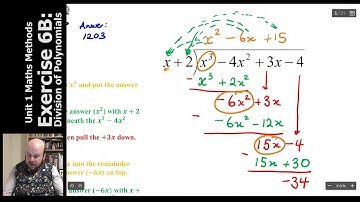 Unit 1 Maths Methods
Exercise 6B:
Division of Polynomials
Answer:
1203
x² - 6x + 15
x + 2 x³ - 4x² + 3x - 4
x³ + 2x²
-6x² + 3x
-6x² - 12x
15x - 4
15x + 30
-34
x³ and put the answer
answer (x²) with x + 2
neath the x³ - 4x²
en pull the +3x down.
x into the remainder
answer (-6x) on top.
answer (-6x) with x +